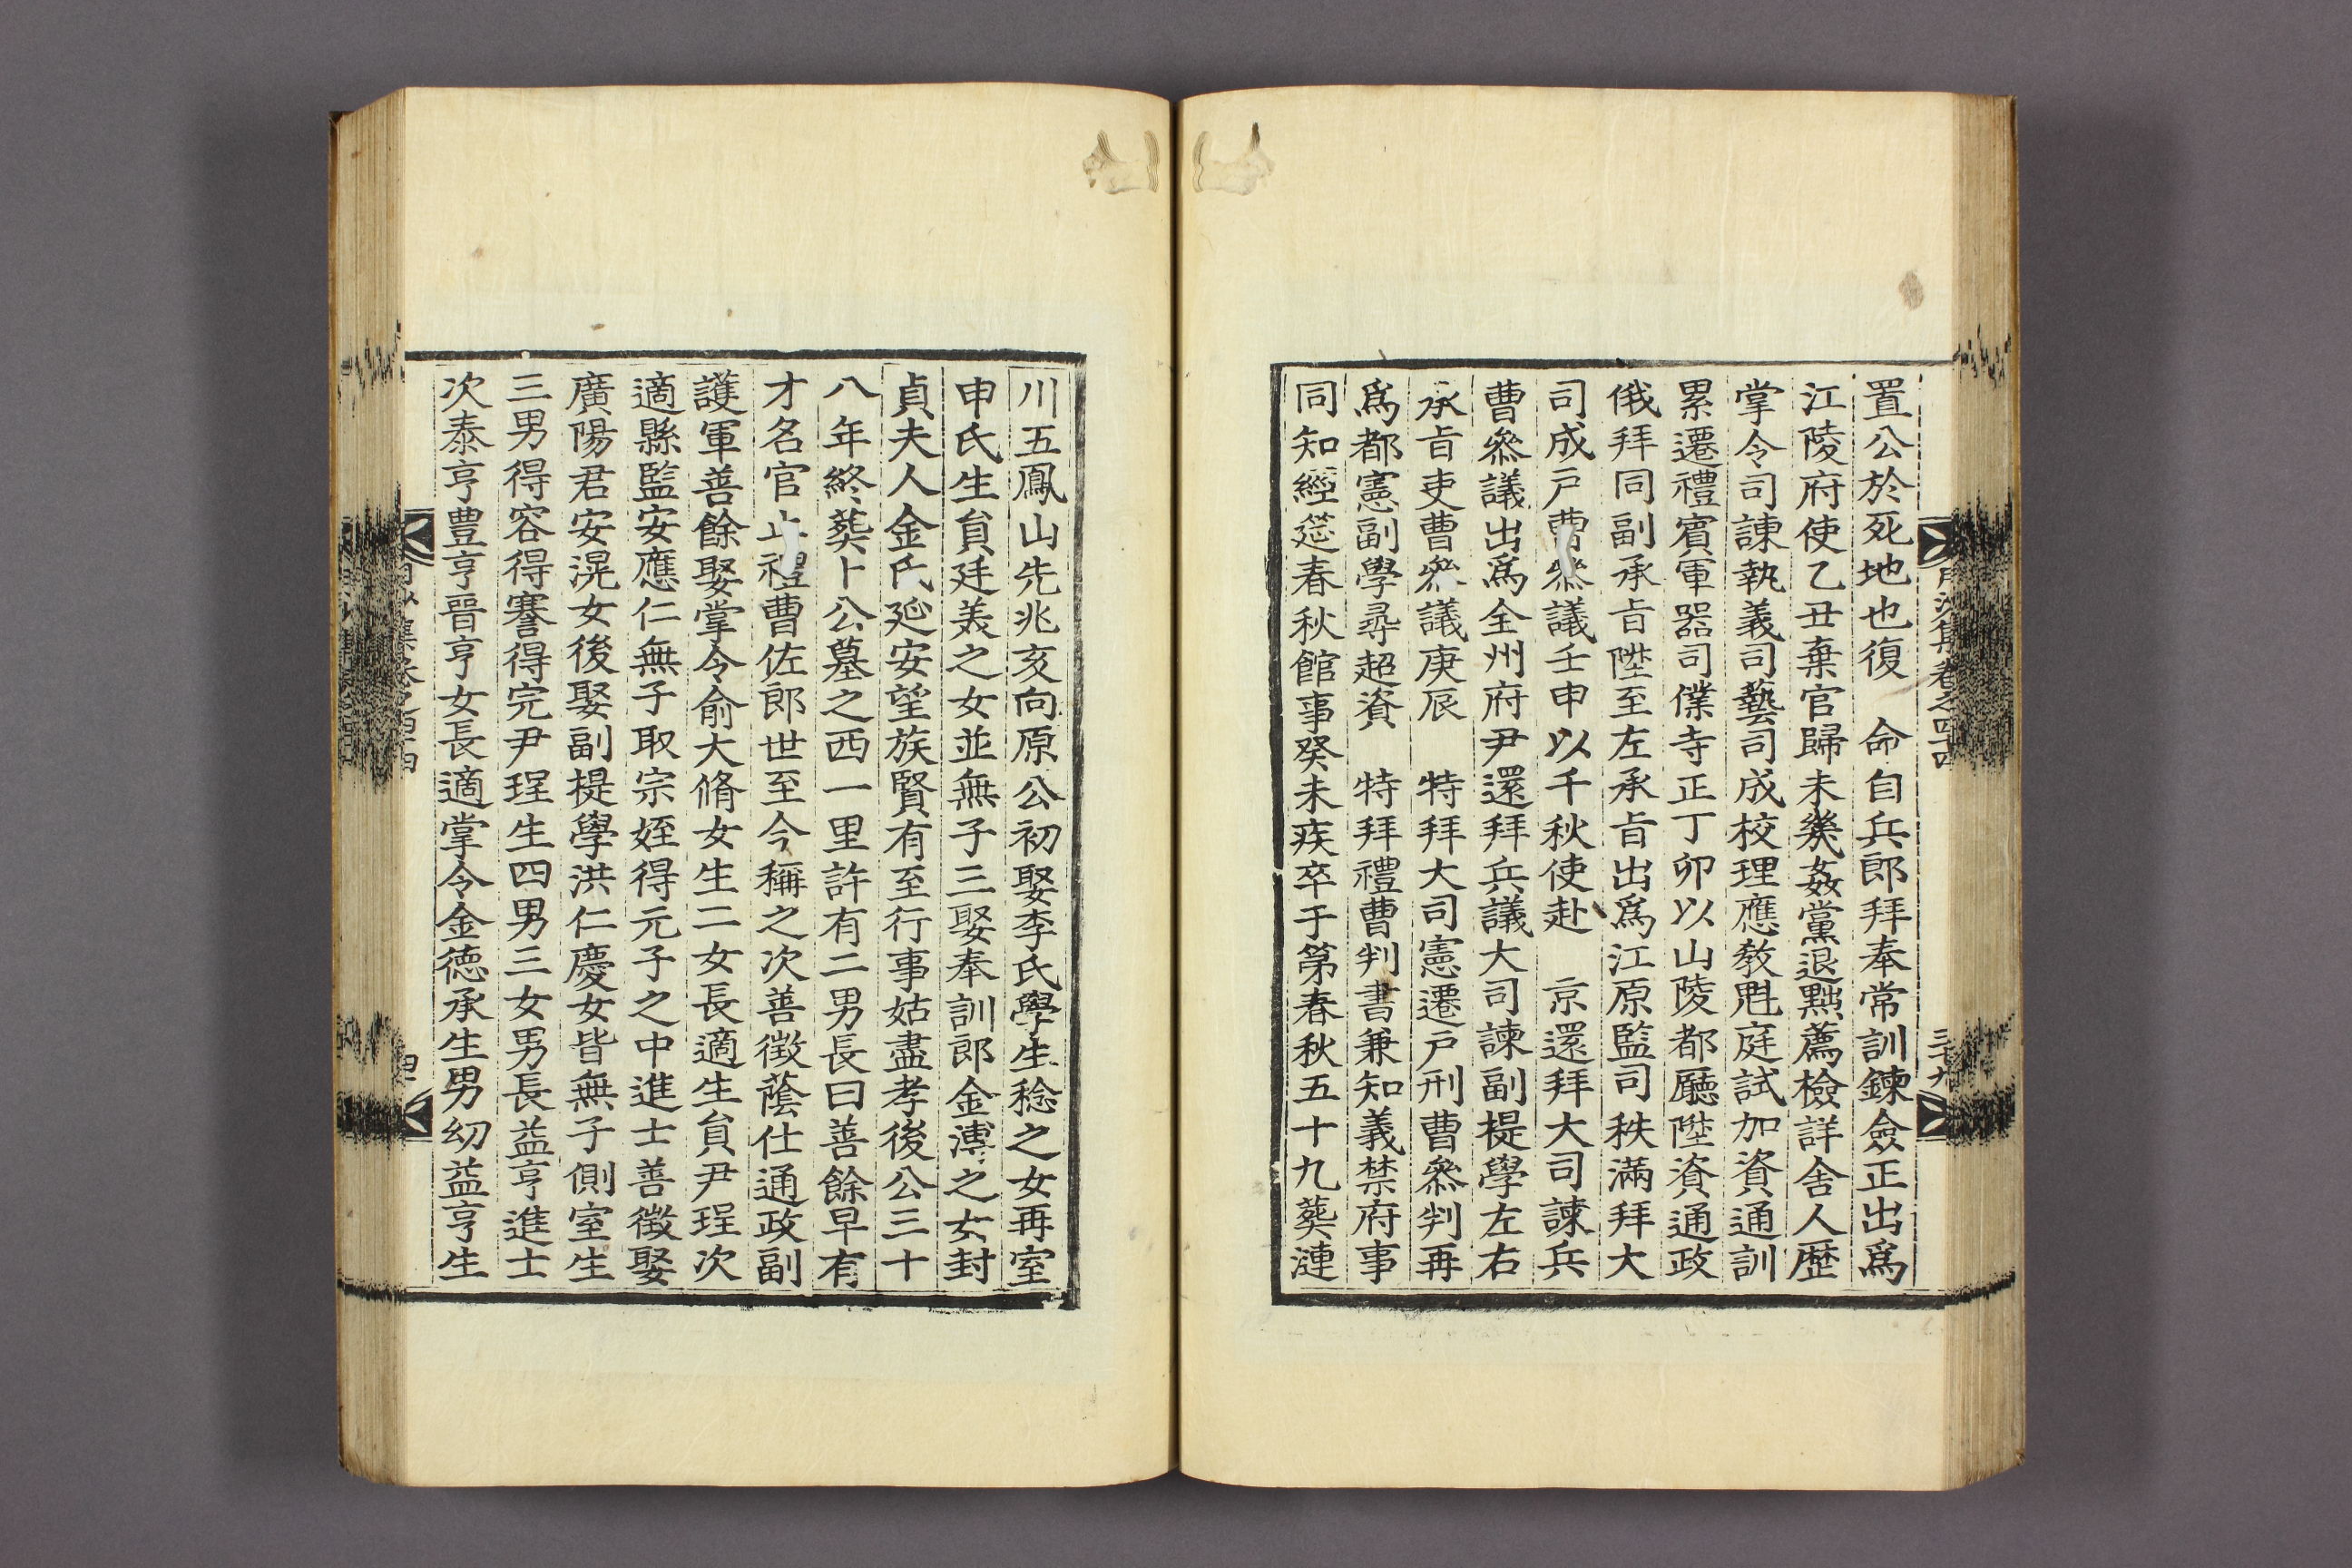 置公於死地也復　命自兵郎拜奉常訓鍊僉正出爲
江陵府使乙丑棄官歸未幾姦黨退黜薦檢詳舍人歷
掌令司諫執義司藝司成校理應敎魁庭試加資通訓
累遷禮賓軍器司僕寺正丁卯以山陵都廳陞資通政
俄拜同副承旨陞至左承旨出爲江原監司秩滿拜大
司成戶曹叅議壬申以千秋使赴　京還拜大司諫兵
曹叅議出爲全州府尹還拜兵議大司諫副提學左右
承旨吏曹叅議庚辰　特拜大司憲遷戶刑曹叅判再
爲都憲副學尋超資　特拜禮曹判書兼知義禁府事
同知經筵春秋館事癸未疾卒于第春秋五十九葬漣
集卷之四十四
三十九
川五鳳山先兆亥向原公初娶李氏學生稔之女再室
申氏生員廷美之女並無子三娶奉訓郎金溥之女封
貞夫人金氏延安望族賢有至行事姑盡孝後公三十
八年終葬卜公墓之西一里許有二男長曰善餘早有
才名官止禮曹佐郎世至今稱之次善徵蔭仕通政副
護軍善餘娶掌令俞大脩女生二女長適生員尹珵次
適縣監安應仁無子取宗姪得元子之中進士善徵娶
廣陽君安滉女後娶副提學洪仁慶女皆無子側室生
三男得容得謇得完尹珵生四男三女男長益亨進士
次泰亨豊亨晉亨女長適掌令金德承生男幼益亨生